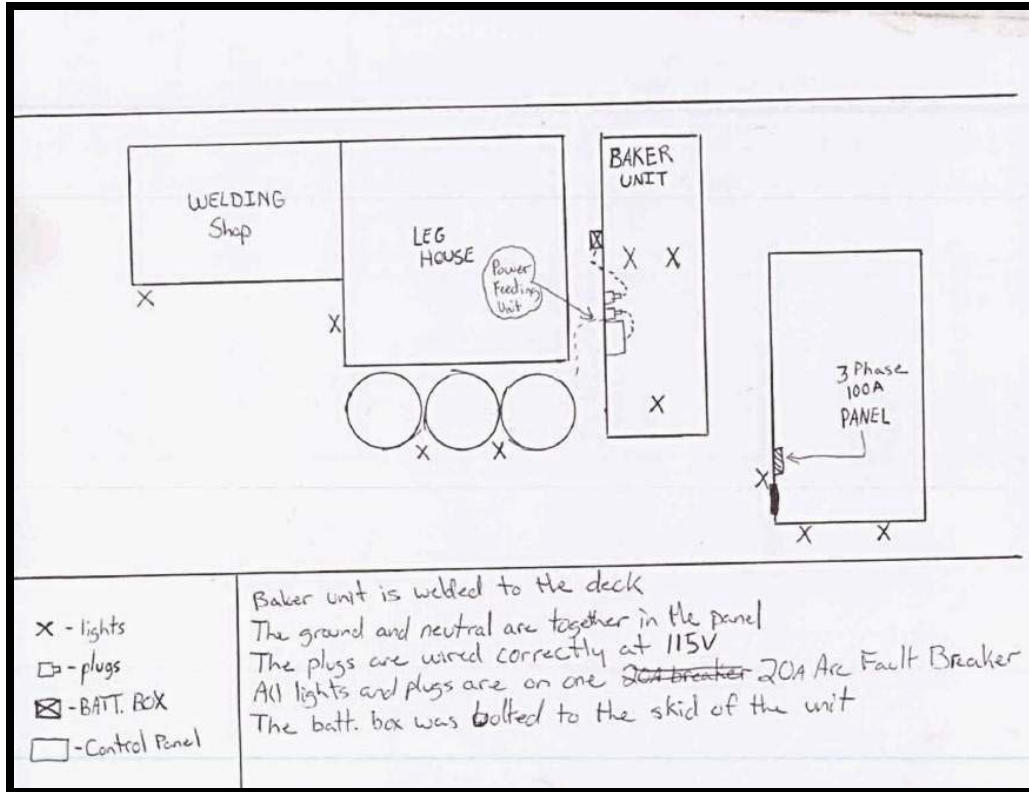 WELDING
Shop
LEG
HOUSE
Power
Feeding
Unit
BAKER
UNIT
3 Phase
100A
PANEL
X - lights
- plugs
- BATT. BOX
- Control Panel
Baker unit is welded to the deck
The ground and neutral are together in the panel
The plugs are wired correctly at 115V
All lights and plugs are on one 20A breaker 20A Arc Fault Breaker
The batt. box was bolted to the skid of the unit